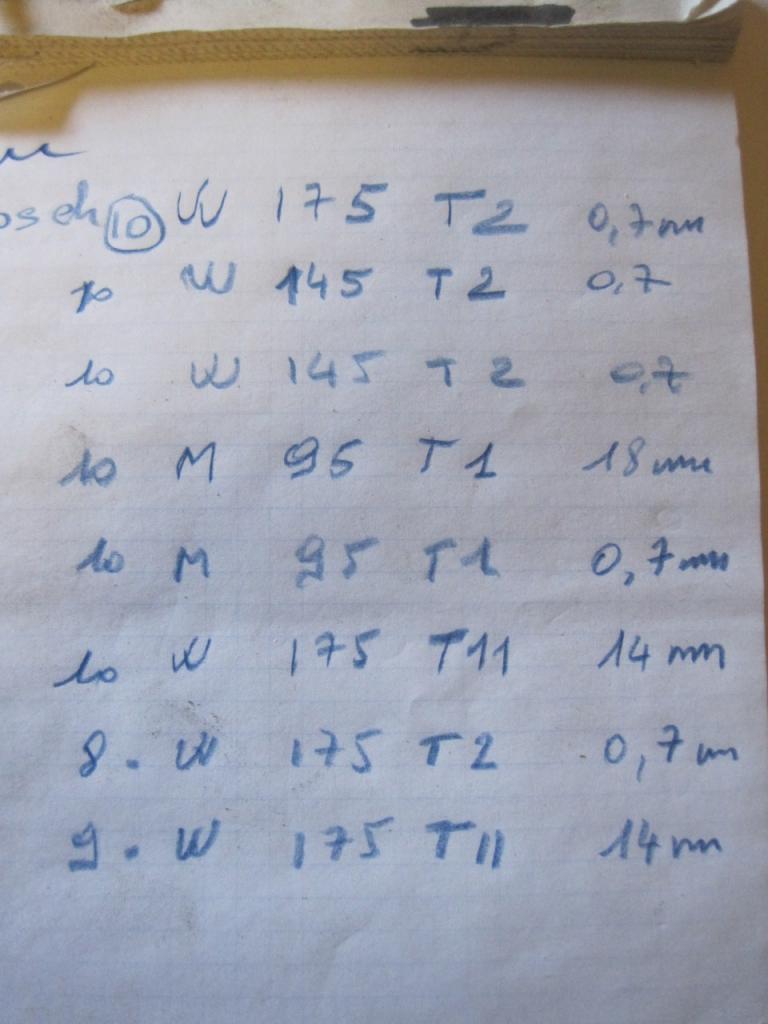 osch 10 W 175 T2 0,7mm
10 W 145 T2 0,7
10 W 145 T2 0,7
10 M 95 T1 18mm
10 M 95 T1 0,7mm
10 W 175 T11 14mm
8. W 175 T2 0,7m
9. W 175 T11 14mm